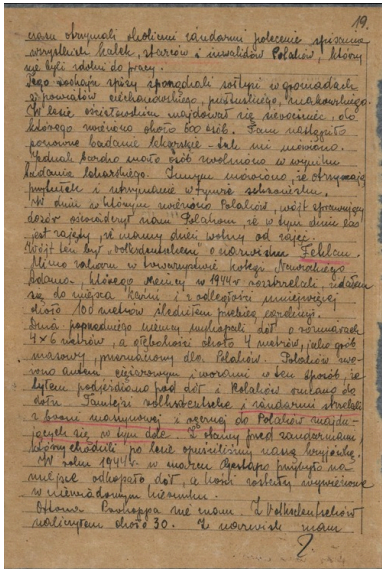 19.
czasu otrzymali okoliczni żandarmi polecenie spisania
wszystkich kalek, starców i inwalidów Polaków, którzy
nie byli zdolni do pracy.
Tego rodzaju spisy sporządzali sołtysi w gromadach
z powiatów ciechanowskiego, pułtuskiego, makowskiego.
W lesie ościsłowskim znajdował się nowoniec, do
którego zwieziono około 600 osób. Tam nastąpiło
ponowne badanie lekarskie - tak mi mówiono.
Jednak bardzo mało osób zwolniono w wyniku
badania lekarskiego. Innym mówiono, że otrzymają
przytułek i utrzymanie w formie schroniska.
W dniu w którym zwieziono Polaków, wójt sprawujący
dozór oświadczył nam Polakom, że w tym dniu las
jest zajęty, że mamy dzień wolny od zajęć.
Wójt ten był "volksdeutschem" o nazwisku Fehlau.
Mimo zakazu w towarzystwie kolegi
Adama, którego Niemcy w 1944 r. rozstrzelali, udałem
się do miejsca kaźni i z odległości mniejszej
około 100 metrów śledziłem przebieg egzekucji.
Dnia poprzedniego niemcy wykopali dół o rozmiarach
4 x 6 metrów, a głębokości około 4 metrów, jako grób
masowy, przeznaczony dla Polaków. Polaków zwo-
żono autem ciężarowym i wozami w ten sposób, że
tyłem podjeżdżano pod dół i Polaków zrzucano do
dołu. Tamtejsi volksdeutsche i żandarmi strzelali
z broni maszynowej i ręcznej do Polaków znajdu-
jących się w tym dole. Z obawy przed żandarmami,
którzy chodzili po lesie opuściliśmy naszą kryjówkę.
W roku 1944 r. w marcu Gestapo przybyło na
miejsce odkopało dół, a kości rozbite wywieziono
w niewiadomym kierunku.
nie znam. Z Volksdeutschów
naliczyłem około 30. Z nazwisk znam